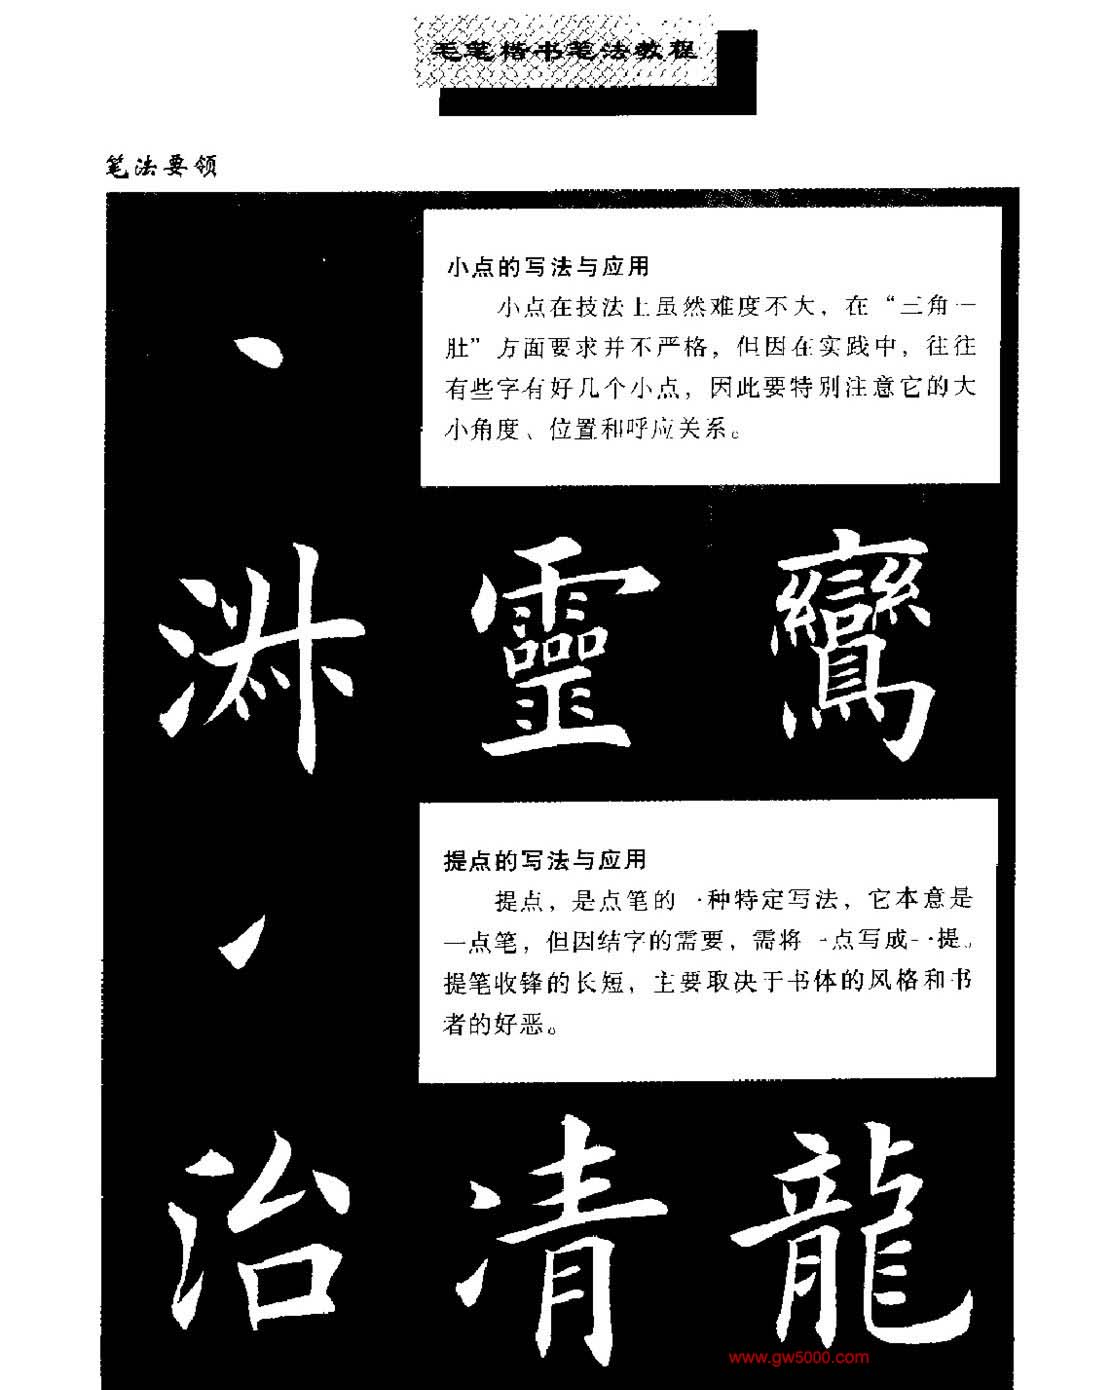 毛笔楷书笔法教程
笔法要领
小点的写法与应用
小点在技法上虽然难度不大，在“三角一
肚”方面要求并不严格，但因在实践中，往往
有些字有好几个小点，因此要特别注意它的大
小角度、位置和呼应关系。
靈 鸞
提点的写法与应用
提点，是点笔的一种特定写法，它本意是
一点笔，但因结字的需要，需将一点写成一提。
提笔收锋的长短，主要取决于书体的风格和书
者的好恶。
治 清 龍
www.gw5000.com